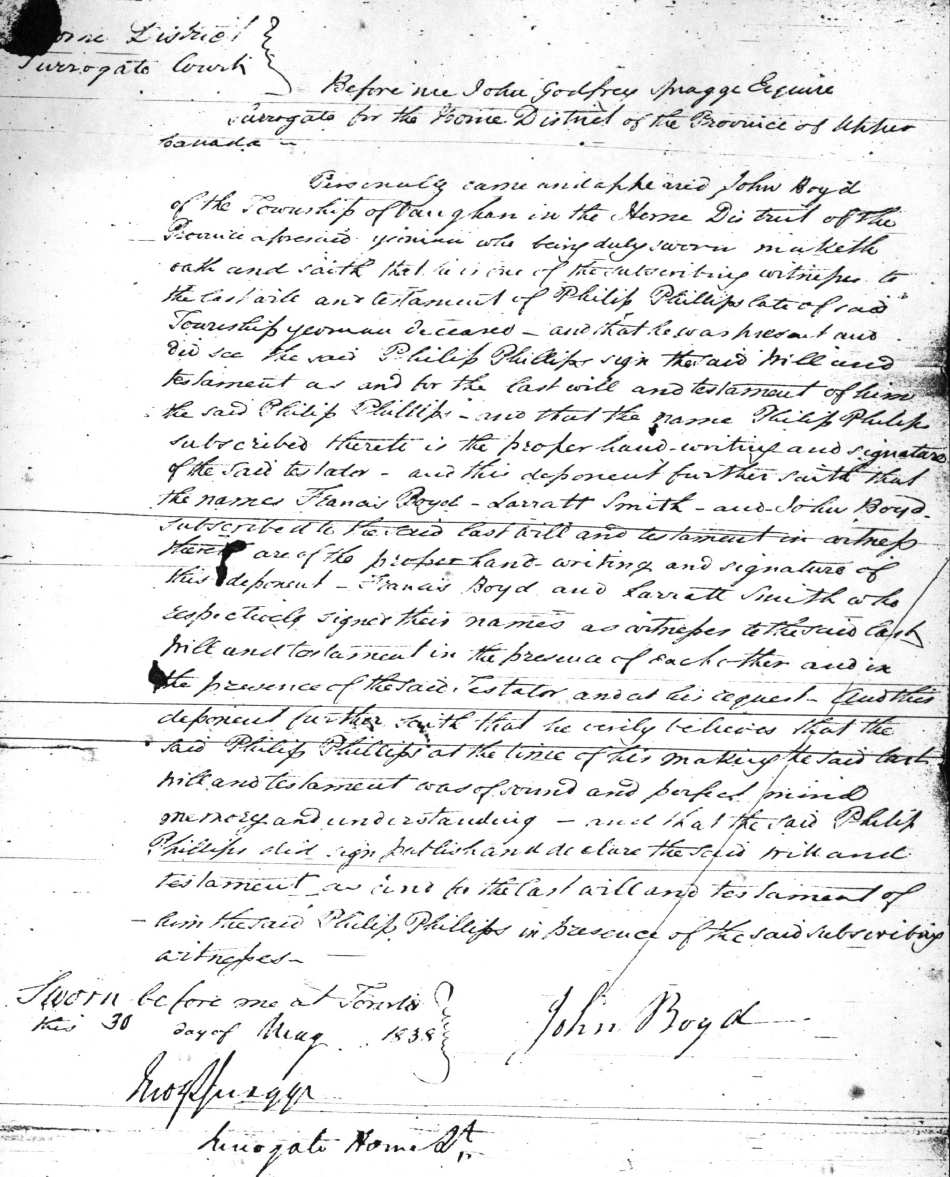 Home District
Surrogate Court
Before me John Godfrey Spragge Esquire
Surrogate for the Home District of the Province of Upper
Canada -
Personally came and appeared John Boyd
of the Township of Vaughan in the Home District of the
Province aforesaid yeoman who being duly sworn maketh
oath and saith that he is one of the subscribing witnesses to
the last will and testament of Philip Phillips late of said
Township yeoman deceased - and that he was present and
did see the said Philip Phillips sign the said Will and
testament as and for the last will and testament of him
the said Philip Phillips - and that the name Philip Philips
subscribed thereto is the proper hand-writing and signature
of the said testator - and this deponent further saith that
the names Francis Boyd - Larratt Smith - and John Boyd -
subscribed to the said last will and testament in witness
thereof are of the proper hand-writing and signature of
this deponent - Francis Boyd and Larratt Smith who
respectively signed their names as witnesses to the said last
Will and testament in the presence of each other and in
the presence of the said Testator and at his request - And this
deponent further saith that he verily believes that the
said Philip Phillips at the time of his making the said last
Will and testament was of sound and perfect mind
memory and understanding - and that the said Philip
Phillips did sign publish and declare the said Will and
testament as and for the last will and testament of
him the said Philip Phillips in presence of the said subscribing
witnesses -
Sworn before me at Toronto
this 30 day of May 1838
John Boyd
Jno G Spragge
Surrogate Home Dt